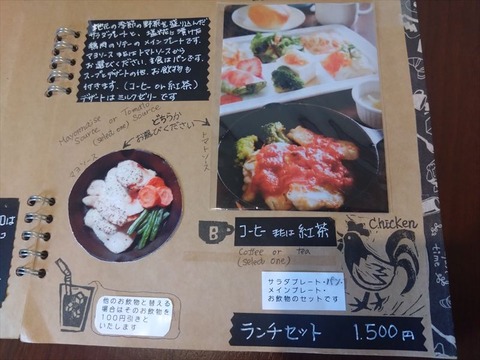 地元の季節の野菜を盛り込んだ
サラダプレートと、塩麹に漬けた
鶏肉のソテーのメインプレートです。
マヨソース または トマトソースから
お選びください。主食はパンです。
スープとデザートの他、お飲みもの
付きます。(コーヒー or 紅茶)
デザートはミルクゼリーです
Mayonnaise or Tomato
Source (select one) Source
どちらか
お選びください
マヨソース
トマトソース
B コーヒー または 紅茶
Coffee or TEA
(select one)
Chicken
サラダプレート・パン・
メインプレート・
お飲物のセットです
他のお飲物と替える
場合はそのお飲物を
100円引きと
いたします
ランチセット 1.500円